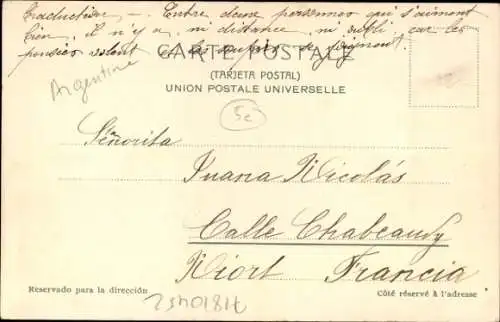 Traduction — . Entre deux personnes qui s'aiment
bien, il n'y a, ni distance, ni oubli, car les
pensées volent et les soupirs se joignent.
CARTE POSTALE
(TARJETA POSTAL)
UNION POSTALE UNIVERSELLE
Argentine
5e
Señorita
Juana Nicolás
Calle Chabeaudy
Niort Francia
Reservado para la dirección
Côté réservé à l'adresse